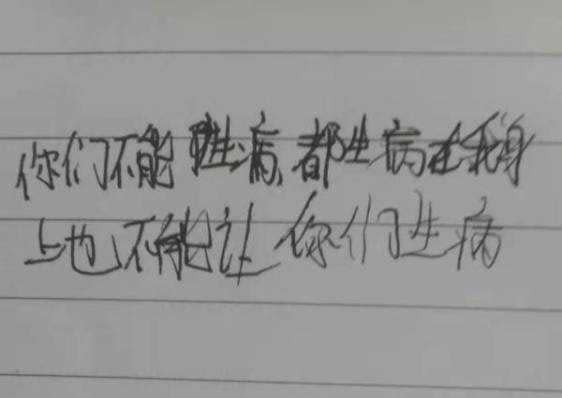 你们不能生病,都生病在我身
上也不能让你们生病